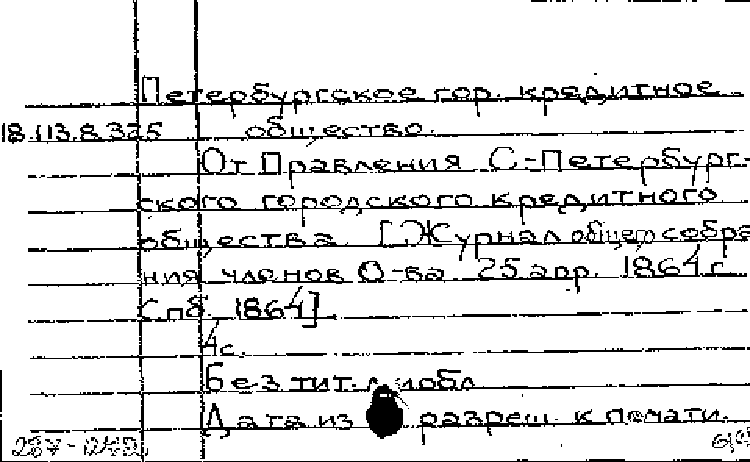 Петербургское гор. кредитное
18.113.8.325 общество.
От Правления С.-Петербург-
ского городского кредитного
общества. [Журнал общего собра
ния членов О-ва 25 апр. 1864 г.
Спб. 1864]
4 с.
Без тит. л. и обл.
Дата из разреш. к печати.